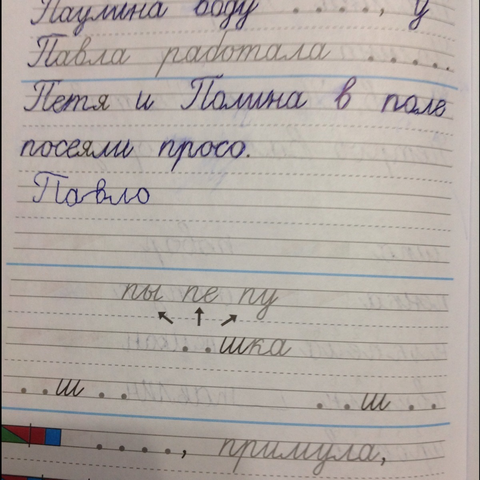 Паулина воду . . . . , у
Павла работала . . . . .
Петя и Полина в поле
посеяли просо.
Павло
пы пе пу
. . шка
. . ш . . . . ш . .
. . . . , примула,